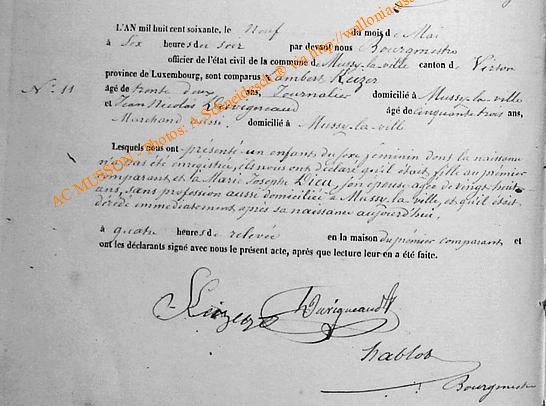 L'AN mil huit cent soixante, le Neuf du mois de Mai
à Six heures du soir par devant nous Bourgmestre
officier de l'état civil de la commune de Mussy-la-ville canton de Virton
province de Luxembourg, sont comparus Lambert Keizer
N° 11
âgé de trente deux ans, Journalier domicilié à Mussy-la-ville
et Jean Nicolas âgé de cinquante trois ans,
Marchand aussi domicilié à Mussy-la-ville
Lesquels nous ont présenté un enfant du sexe féminin dont la naissance
n'a pas été enregistrée, ils nous ont déclaré qu'il était fille au prémier
comparant et à Marie Joseph Dieu, son épouse agée de vingt huit
ans, sans profession aussi domiciliée à Mussy-la-ville, et qu'il était
décédé immédiatement après sa naissance aujourd'hui,
à quatre heures de relevée en la maison du prémier comparant et
ont les déclarants signé avec nous le présent acte, après que lecture leur en a été faite.
Keizer
Bourgmestre
AC MUSSON - photos: A. Schneidesch © via http://wallonia